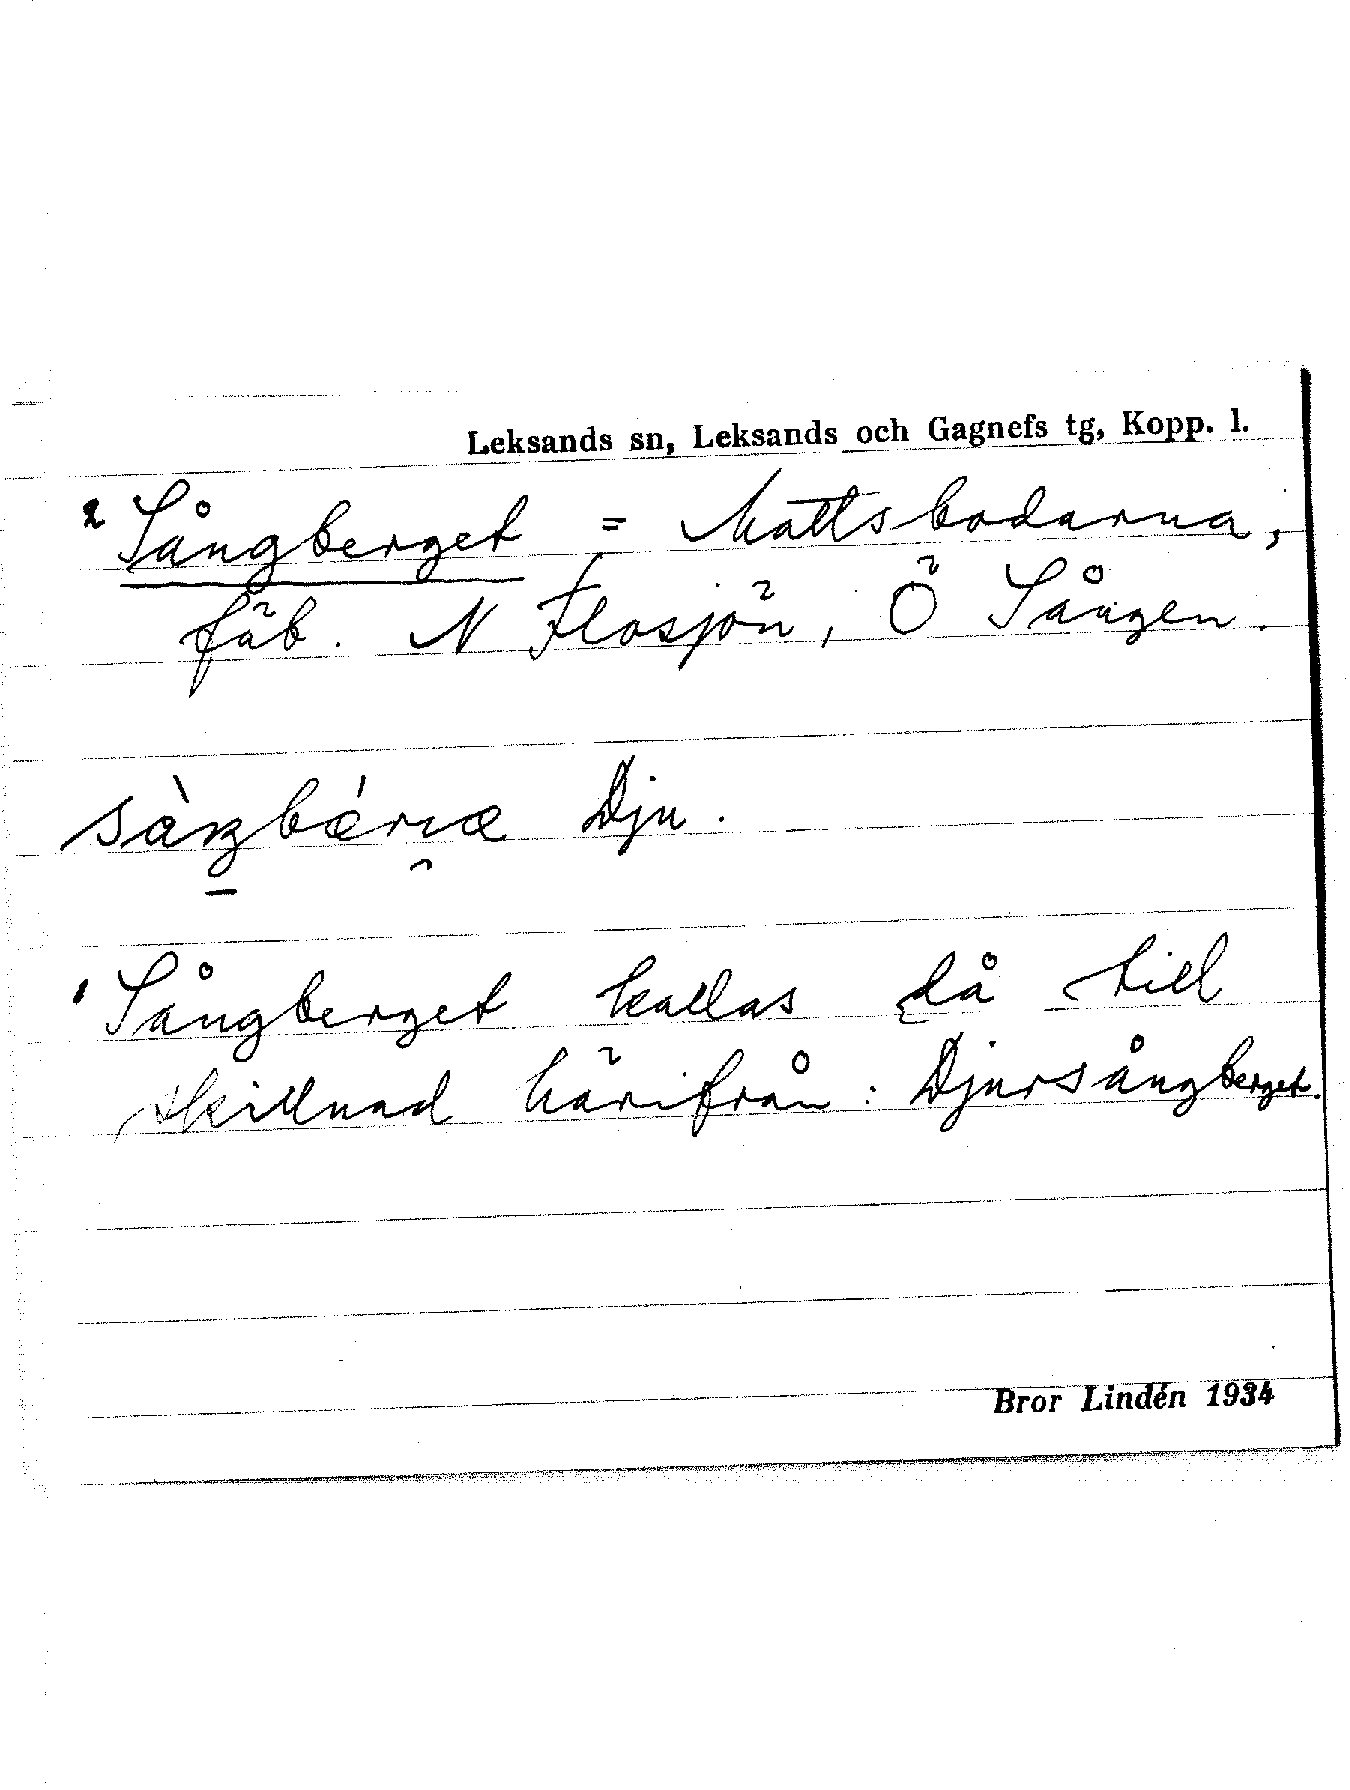 Leksands sn, Leksands och Gagnefs tg, Kopp. l.
2 Sångberget = Mattsbodarna,
fäb. N Flosjön, Ö Sången.
Dju.
1 Sångberget kallas då till
skillnad härifrån: Djursångberget.
Bror Lindén 1934